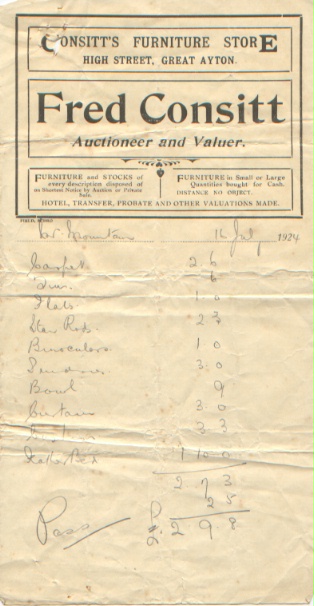 CONSITT'S FURNITURE STORE
HIGH STREET, GREAT AYTON.
Fred Consitt
Auctioneer and Valuer.
FURNITURE and STOCKS of
every description disposed of
on Shortest Notice by Auction or Private
Sale.
FURNITURE in Small or Large
Quantities bought for Cash.
DISTANCE NO OBJECT.
HOTEL, TRANSFER, PROBATE AND OTHER VALUATIONS MADE.
16 July 1924
Carpet 2 6
6
1 0
Stair Rods 2 3
Binoculars 1 0
3 0
Bowl 9
Curtain 3 0
3 3
1 10 0
2 7 3
2 5
£ 2 9 8